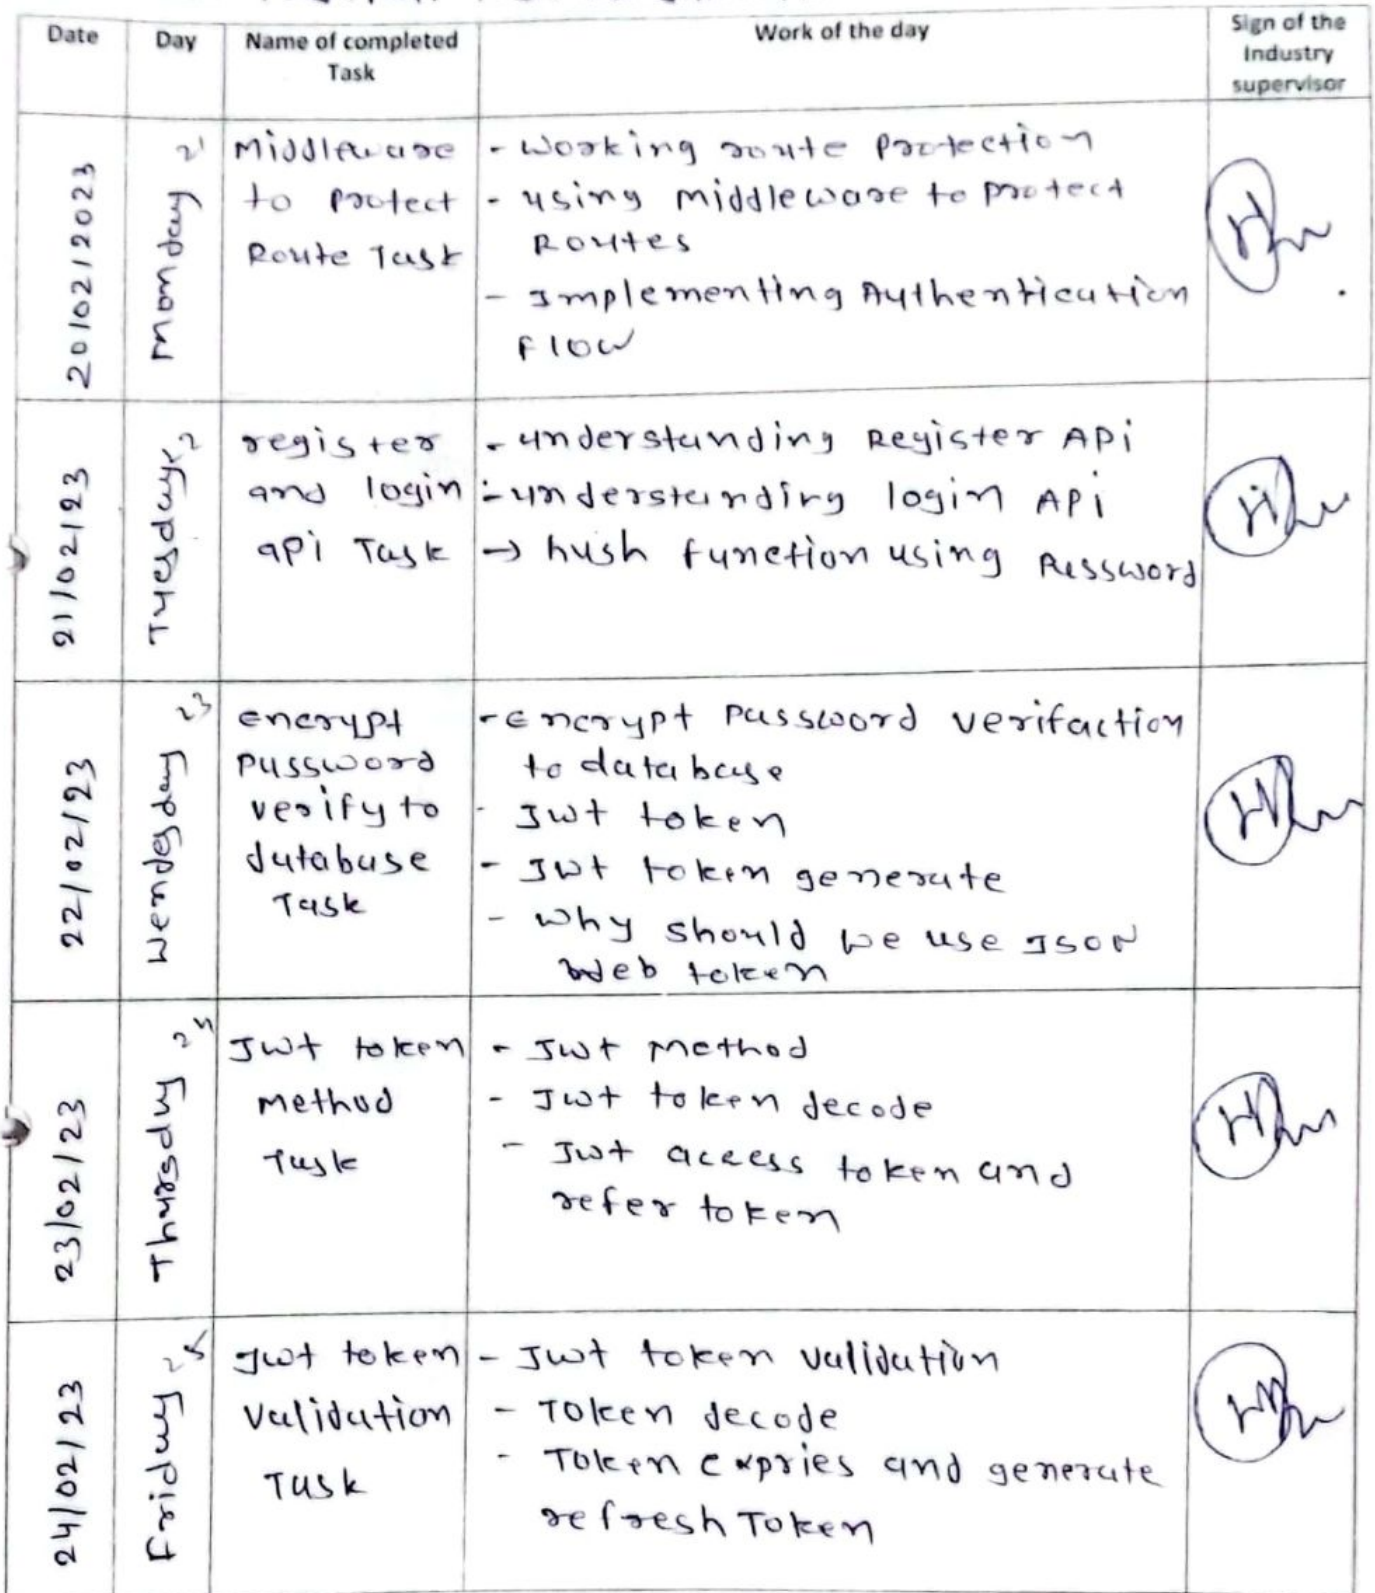 Date
Day
Name of completed
Task
Work of the day
Sign of the
Industry
supervisor
20/02/2023
Monday 21
Middleware
to Protect
Route Task
- Working route Protection
- using middleware to protect
Routes
- Implementing Authentication
Flow
21/02/23
Tuesday
register
and login
api Task
- understanding Register APi
- understanding login APi
→ hash function using Password
22/02/23
Wendesday 23
encrypt
password
verify to
database
Task
- Encrypt Password verifaction
to database
- Jwt token
- Jwt token generate
- Why should we use JSON
Web token
23/02/23
Thursday 24
Jwt token
Method
Task
- Jwt Method
- Jwt token decode
- Jwt access token and
refer token
24/02/23
Friday 25
Jwt token
Validation
Task
- Jwt token validation
- Token decode
- Token expries and generate
refresh Token